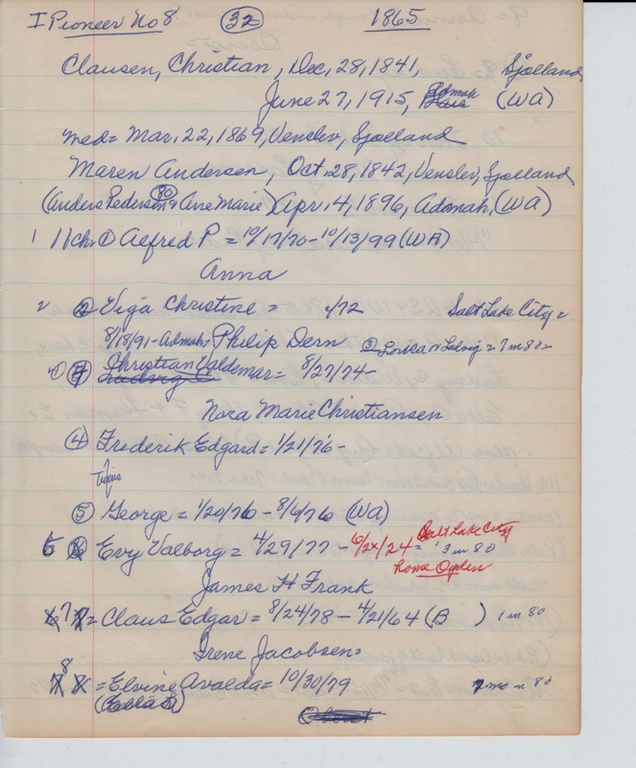 I Pioneer No 8 (32) 1865
Clausen, Christian, Dec, 28, 1841, Sjolland
June 27, 1915, Blair Admah (WA)
med = Mar, 22, 1869, Venslev, Sjoelland
Maren Andersen, Oct. 28, 1842, Venslev, Sjoelland
(Anders Pedersen 80 & Ane Marie) Apr. 4, 1896, Admah, (WA)
1 11 ch, ① Alfred P = 10/17/70 - 10/13/99 (WA)
Anna
2 ② Viga Christine = /72 Salt Lake City =
8/18/91 - Admah, Philip Dern
Christian Valdemar = 8/27/74 -
Ludvig C
Nora Marie Christiansen
④ Frederik Edgard = 1/21/76 -
Twins
⑤ George = 1/20/76 - 8/6/76 (WA)
6 Evy Valborg = 4/29/77 - /24 = Salt Lake City 3 in 80
home Ogden
James H Frank
7 = Claus Edgar = 8/24/78 - 4/21/64 (B ) 1 in 80
Irene Jacobsen =
8 = Elvine Avalda = 10/30/79 in 80